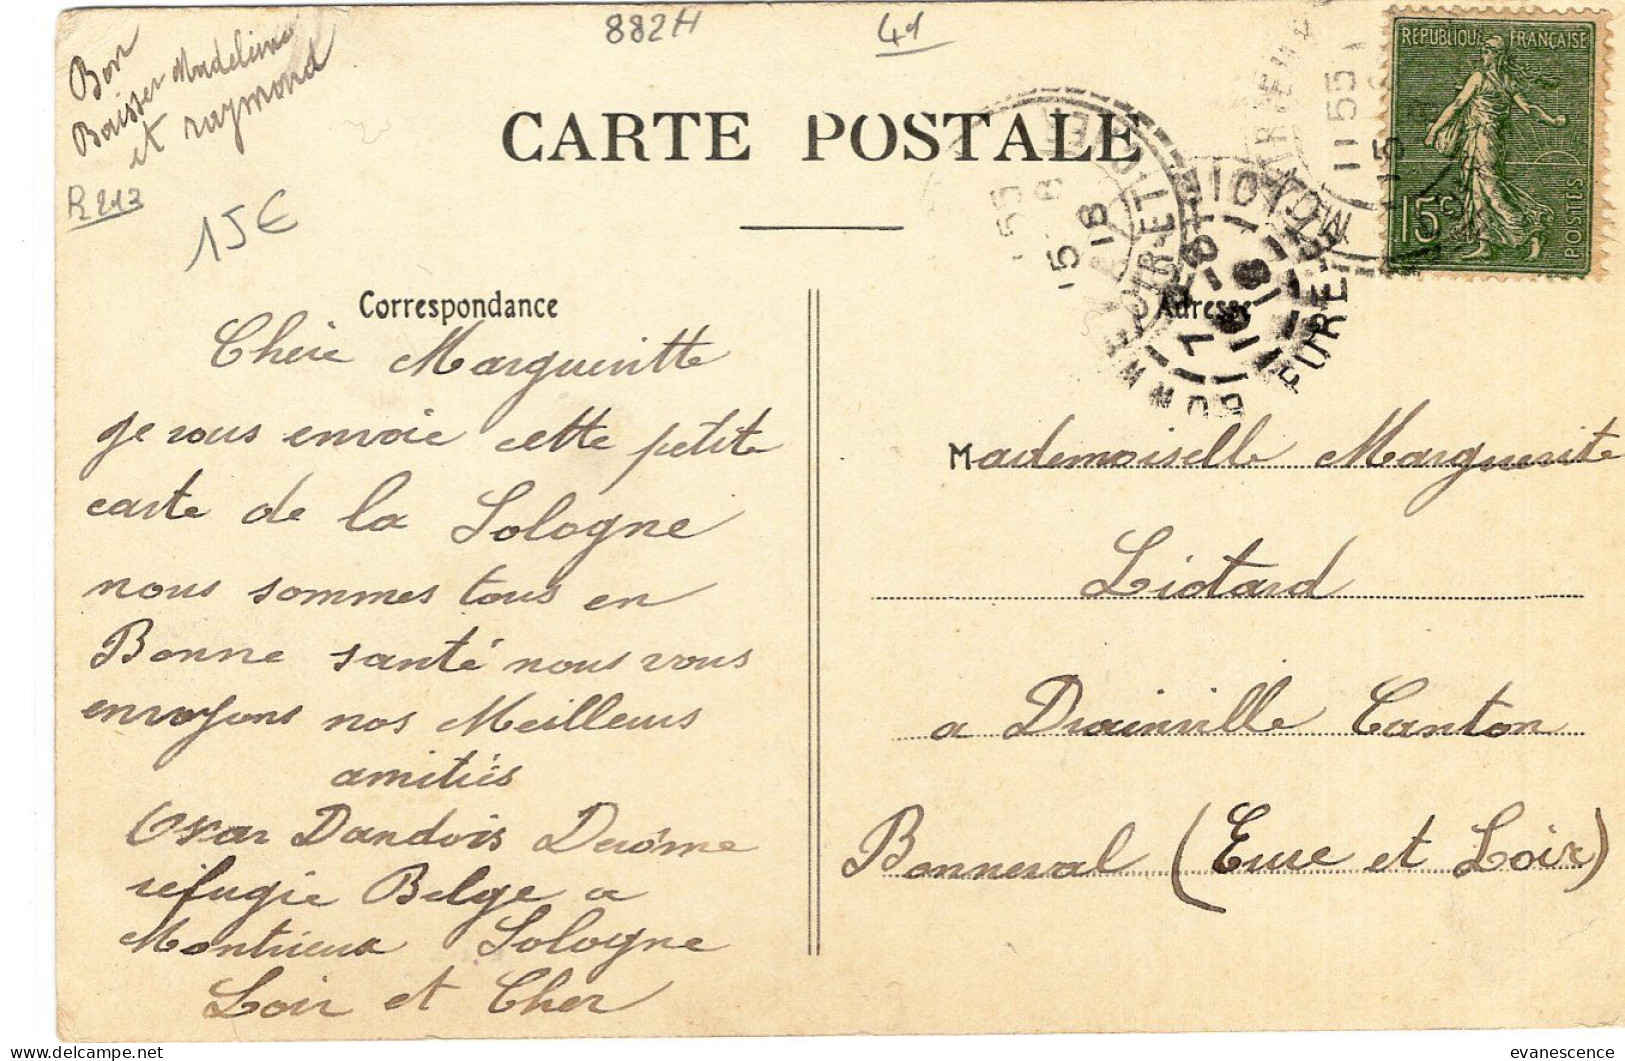 Bon
Baisser Madeleine
et raymond
R 213
15€
882H
4d
CARTE POSTALE
REPUBLIQUE FRANÇAISE
15c
POSTES
Correspondance
Chère Marguerittte
je vous envoie cette petite
carte de la Sologne
nous sommes tous en
Bonne santé nous vous
envoyons nos Meilleurs
amitiés
Oscar Dandois Derôme
réfugie Belge a
Montrieux Sologne
Loir et Cher
Adresse
Mademoiselle Marguerite
Liotard
a Drainville Canton
Bonneval (Eure et Loir)
evanescence